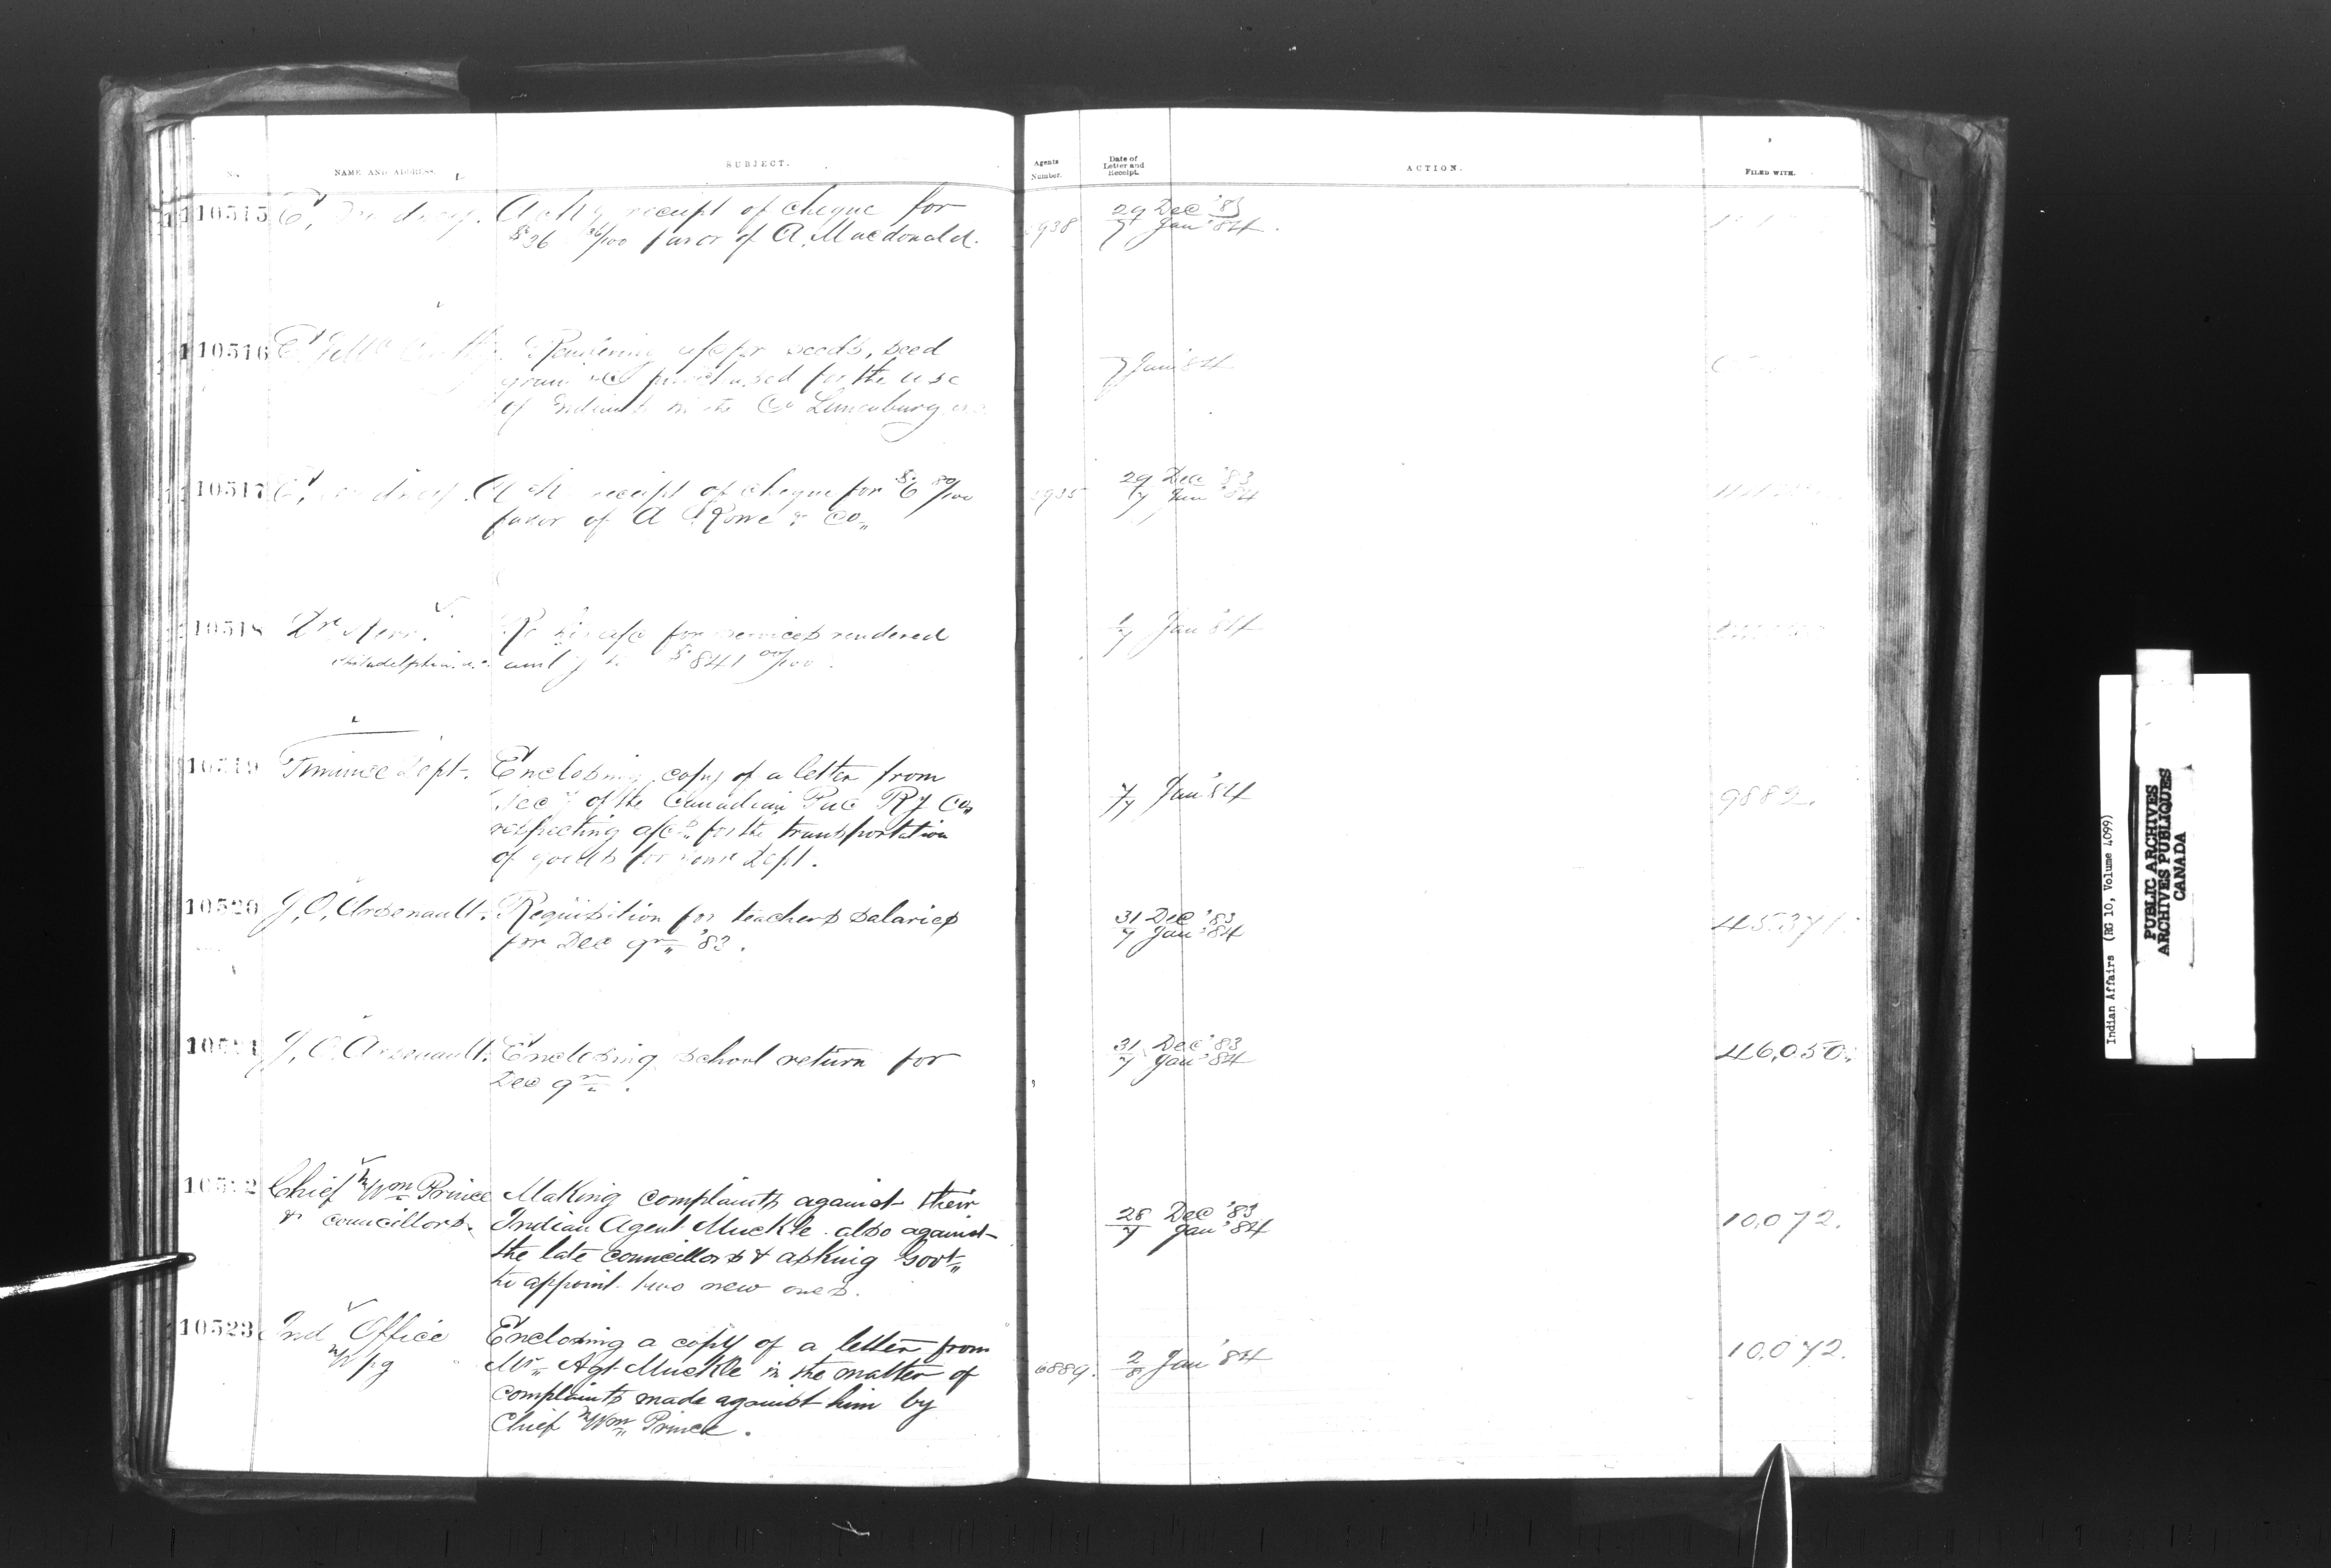 No. NAME AND ADDRESS. SUBJECT. Agents Number. Date of Letter and Receipt. ACTION. FILED WITH.
110515 E, Ackg receipt of cheque for 29 Dec '83
$36 /100 favor of A. Macdonald. 938 7 Jan '84.
110516 Rendering a/c for seeds, seed 7 Jan '84
grain &c purchased for the use
of Indians in the Co Lunenburg
110517 Ackg receipt of cheque for $6 80/100 935 29 Dec '83
favor of A Rowe & Co,, 7 Jan '84
10518 Dr Re his a/c for services rendered 7 Jan '84
Philadelphia $841 00/100.
10519 Finance Dept. Enclosing copy of a letter from
Secy of the Canadian Pac Ry Co,, 7/7 Jan '84 9882.
respecting a/cs for the transportation
of goods for Dept.
10520 J, O, Arsenault. Requisition for teachers salaries 31 Dec '83 45371.
for Dec qr,, '83. 7 Jan '84
10521 J, O. Arsenault. Enclosing school return for 31 Dec '83 46,050.
Dec qr. 7 Jan '84
10522 Chief Wm Prince Making complaints against their
& councillors. Indian Agent Muckle. also against 28 Dec '83 10,072.
the late councillors & asking Govt,, 7 Jan '84
to appoint two new ones.
10523 Ind Office Enclosing a copy of a letter from
Wpg Mr,, Agt Muckle in the matter of 6889. 2/8 Jan '84 10,072.
complaints made against him by
Chief Wm,, Prince.
Indian Affairs (RG 10, Volume 4099)
PUBLIC ARCHIVES
ARCHIVES PUBLIQUES
CANADA